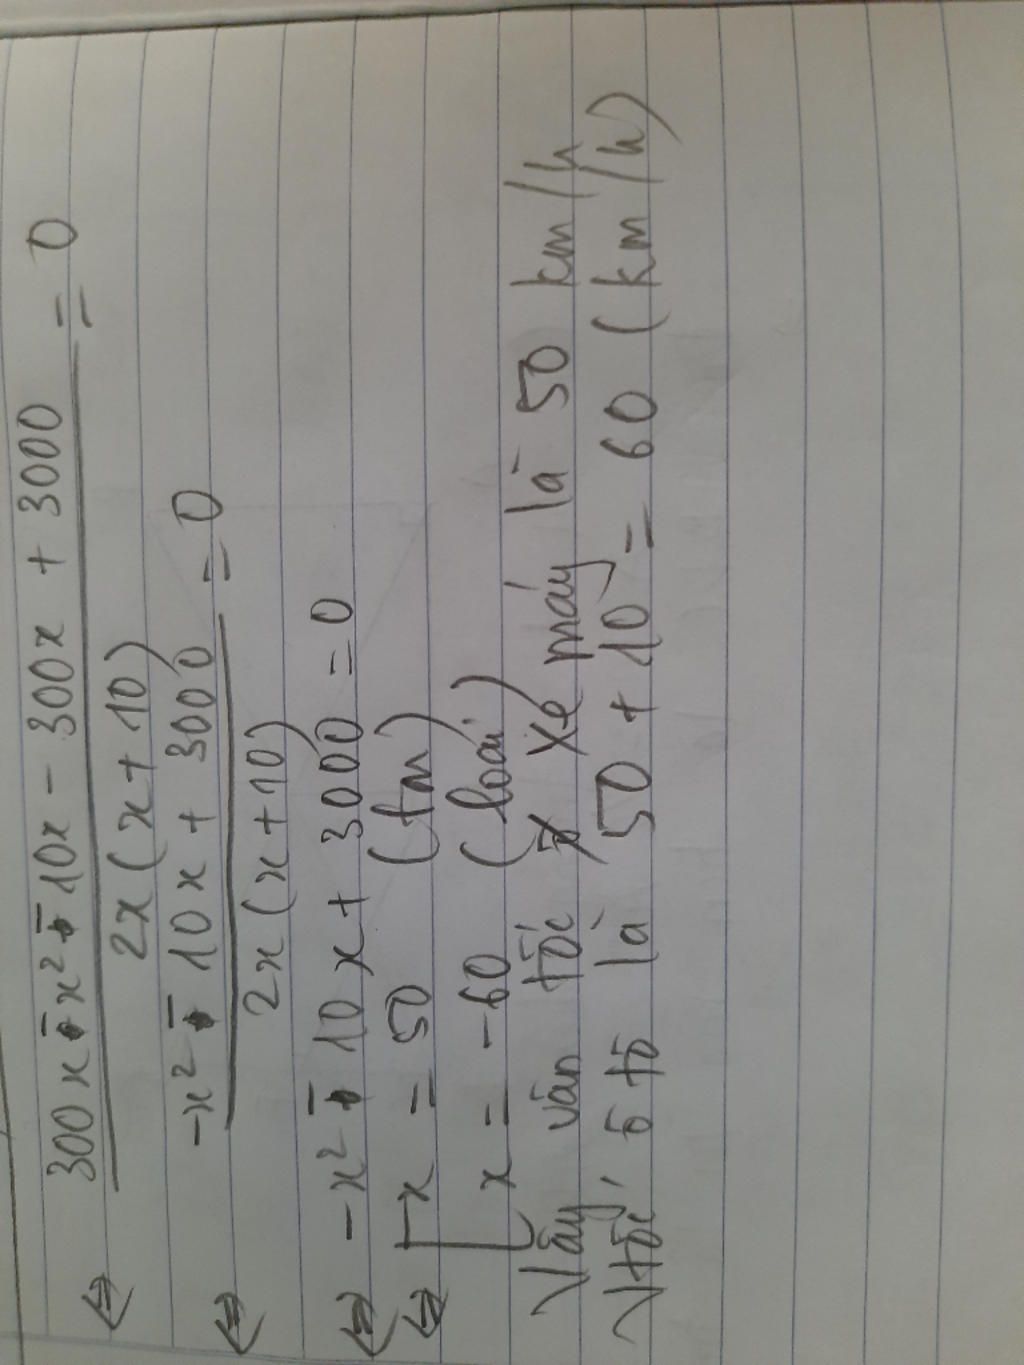 ⇔ 300x - x² - 10x - 300x + 3000 = 0
2x(x+10)
⇔ -x² - 10x + 3000 = 0
2x(x+10)
⇔ -x² - 10x + 3000 = 0
⇔ [ x = 50 (tm)
x = -60 (loại)
Vậy vận tốc xe máy là 50 km/h
Vtốc ô tô là 50 + 10 = 60 (km/h)